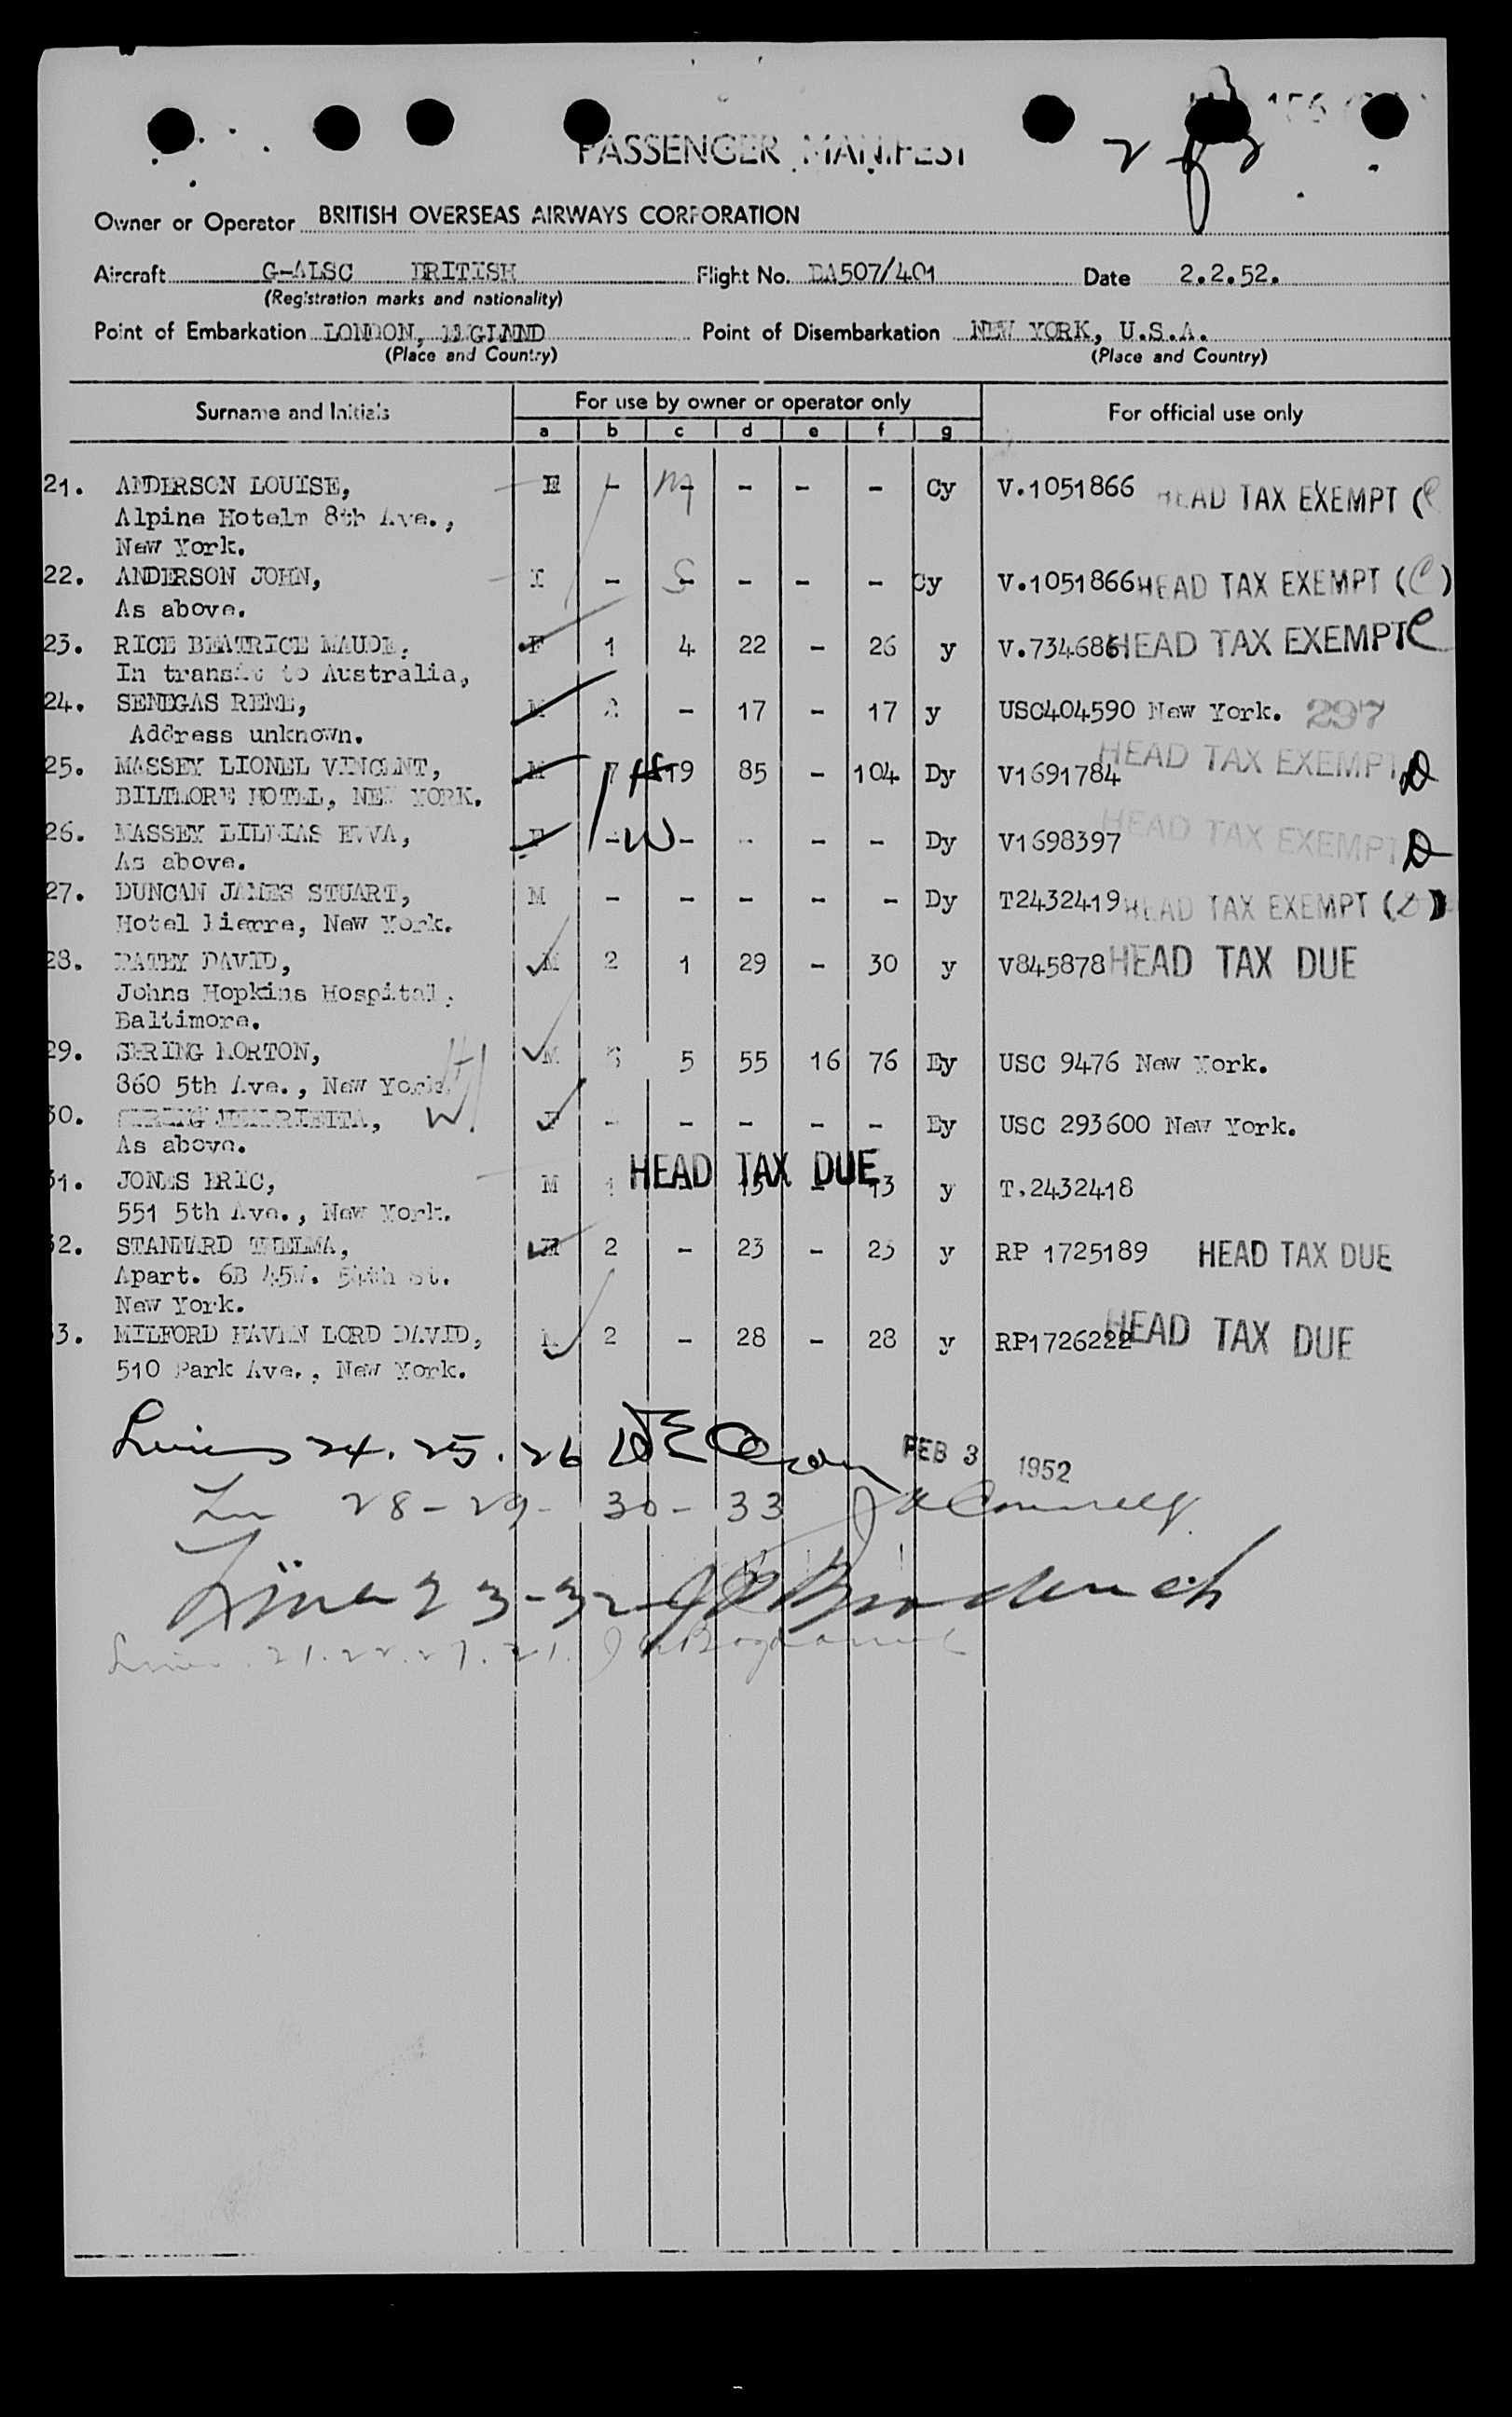 PASSENGER MANIFEST
Owner or Operator BRITISH OVERSEAS AIRWAYS CORPORATION
Aircraft G-ALSC BRITISH Flight No. BA507/401 Date 2.2.52.
(Registration marks and nationality)
Point of Embarkation LONDON, ENGLAND Point of Disembarkation NEW YORK, U.S.A.
(Place and Country) (Place and Country)
Surname and Initials For use by owner or operator only For official use only
a b c d e f g
21. ANDERSON LOUISE, - M - - - - Cy V.1051866 HEAD TAX EXEMPT (C
Alpine Hotelm 8th Ave.,
New York.
22. ANDERSON JOHN, - S - - - - Cy V.1051866 HEAD TAX EXEMPT (C)
As above.
23. RICE BEATRICE MAUDE, F 1 4 22 - 26 y V.734686 HEAD TAX EXEMPT C
In transit to Australia,
24. SENEGAS RENE, M - 17 - 17 y USC404590 New York. 297
Address unknown.
25. MASSEY LIONEL VINCENT, M 7 H 19 85 - 104 Dy V1691784 HEAD TAX EXEMPT D
BILTMORE HOTEL, NEW YORK.
26. MASSEY LILIAS EVVA, F - W - - - - Dy V1698397 HEAD TAX EXEMPT D
As above.
27. DUNCAN JAMES STUART, M - - - - - Dy T2432419 HEAD TAX EXEMPT (D)
Hotel Pierre, New York.
28. PATEY DAVID, M 2 1 29 - 30 y V845878 HEAD TAX DUE
Johns Hopkins Hospital,
Baltimore.
29. MORTON, H M 5 55 16 76 Ey USC 9476 New York.
860 5th Ave., New York.
30. HENRIETTA, W. F - - - - - Ey USC 293600 New York.
As above.
31. JONES ERIC, M 1 HEAD TAX DUE - 13 - 13 y T.2432418
551 5th Ave., New York.
32. STANNARD THELMA, 2 - 23 - 23 y RP 1725189 HEAD TAX DUE
Apart. 6B 45W. 54th St.
New York.
33. MILFORD HAVEN LORD DAVID, M 2 - 28 - 28 y RP1726222 HEAD TAX DUE
510 Park Ave., New York.
Lines 24. 25. 26 FEB 3 1952
28-29- 30-33
Lines 23-32
Lines 21.22.27.31.